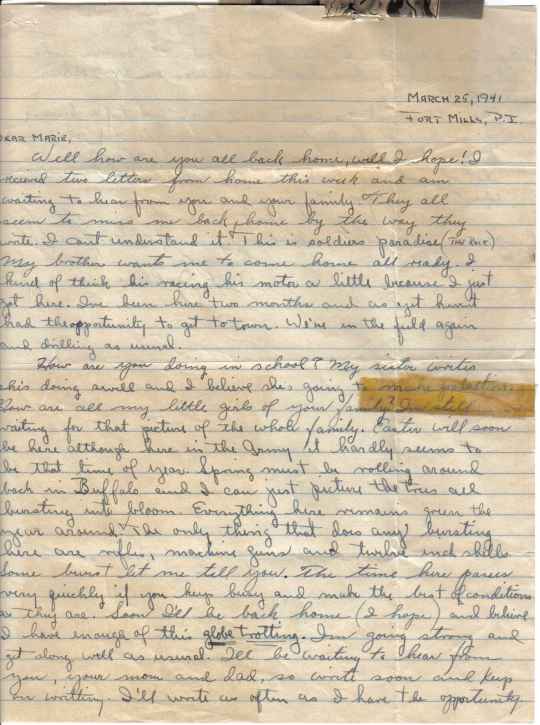 MARCH 25, 1941
FORT MILLS, P.I.
DEAR MARIE,
Well how are you all back home, well I hope! I
recieved two letters from home this week and am
waiting to hear from you and your family. They all
seem to miss me back home by the way they
write. I cant understand it. This is soldiers paradise (THE ROCK)
My brother wants me to come home all ready. I
kind of think his racing his motor a little because I just
got here. I've been here two months and as yet havnt
had the opportunity to get to town. We're in the field again
and drilling as usual.
How are you doing in school? My sister writes
shes doing swell and I believe she's going to make
How are all my little girls of your family? I'm still
waiting for that picture of the whole family. Easter will soon
be here although here in the Army it hardly seems to
be that time of year. Spring must be rolling around
back in Buffalo and I can just picture the trees all
bursting into bloom. Everything here remains green the
year around. The only thing that does any bursting
here are rifles, machine guns and twelve inch shells
Some burst let me tell you. The time here passes
very quickly if you keep busy and make the best of conditions
as they are. Soon I'll be back home (I hope) and believe
I have enough of this globe trotting. I'm going strong and
get along well as usual. I'll be waiting to hear from
you, your mom and dad, so write soon and keep
on writting. I'll write as often as I have the opportunity.